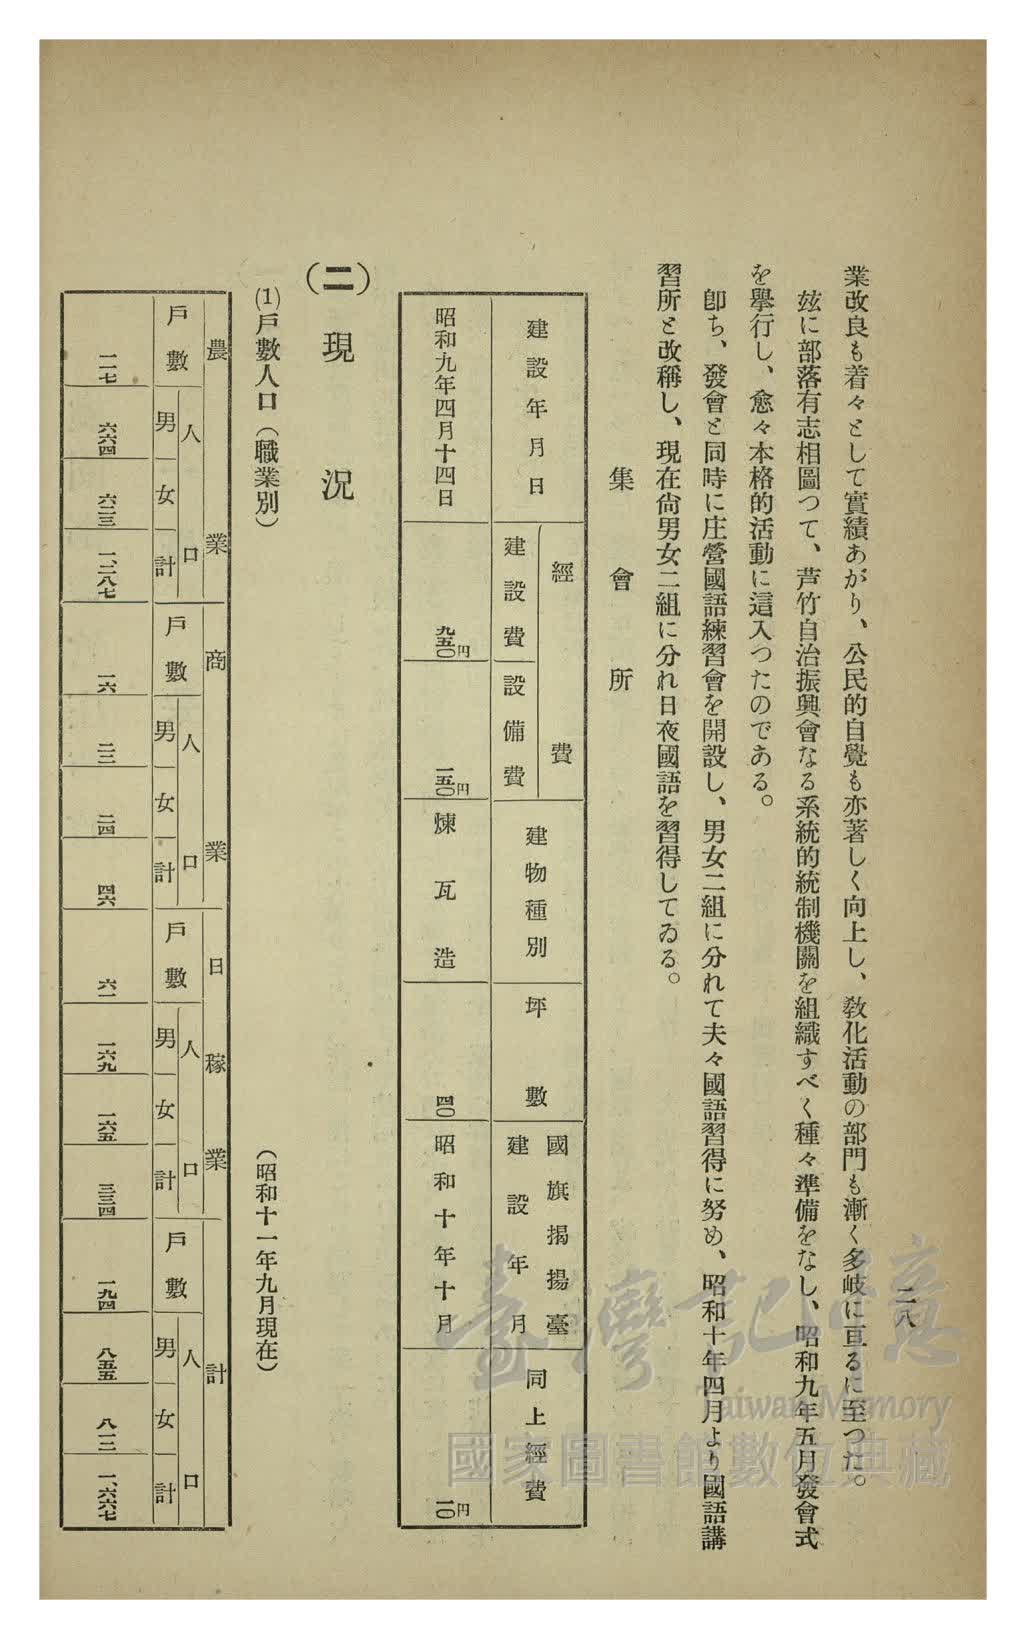 二八
業改良も着々として實績あがり、公民的自覺も亦著しく向上し、敎化活動の部門も漸く多岐に亘るに至つた。
玆に部落有志相圖つて、芦竹自治振興會なる系統的統制機關を組織すべく種々準備をなし、昭和九年五月發會式
を擧行し、愈々本格的活動に這入つたのである。
卽ち、發會と同時に庄營國語練習會を開設し、男女二組に分れて夫々國語習得に努め、昭和十年四月より國語講
習所と改稱し、現在尙男女二組に分れ日夜國語を習得してゐる。
集會所
建設年月日
經費
建設費
設備費
建物種別
坪數
國旗揭揚臺
建設年月
同上經費
昭和九年四月十四日
九五〇円
一五〇円
煉瓦造
四〇
昭和十年十月
一〇円
(二) 現況
(1)戶數人口(職業別)
(昭和十一年九月現在)
農業
商業
日稼業
計
戶數 人口 戶數 人口 戶數 人口 戶數 人口
男 女 計 男 女 計 男 女 計 男 女 計
一一七 六六四 六二三 一、二八七 一六 二二 二四 四六 六一 一六九 一六五 三三四 一九四 八五五 八一二 一、六六七
臺灣記憶
Taiwan Memory
國家圖書館數位典藏